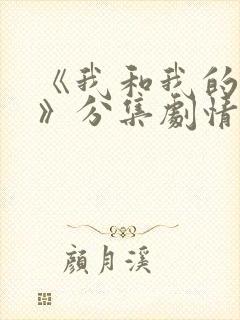 《我和我的
》分集劇情
顏月溪